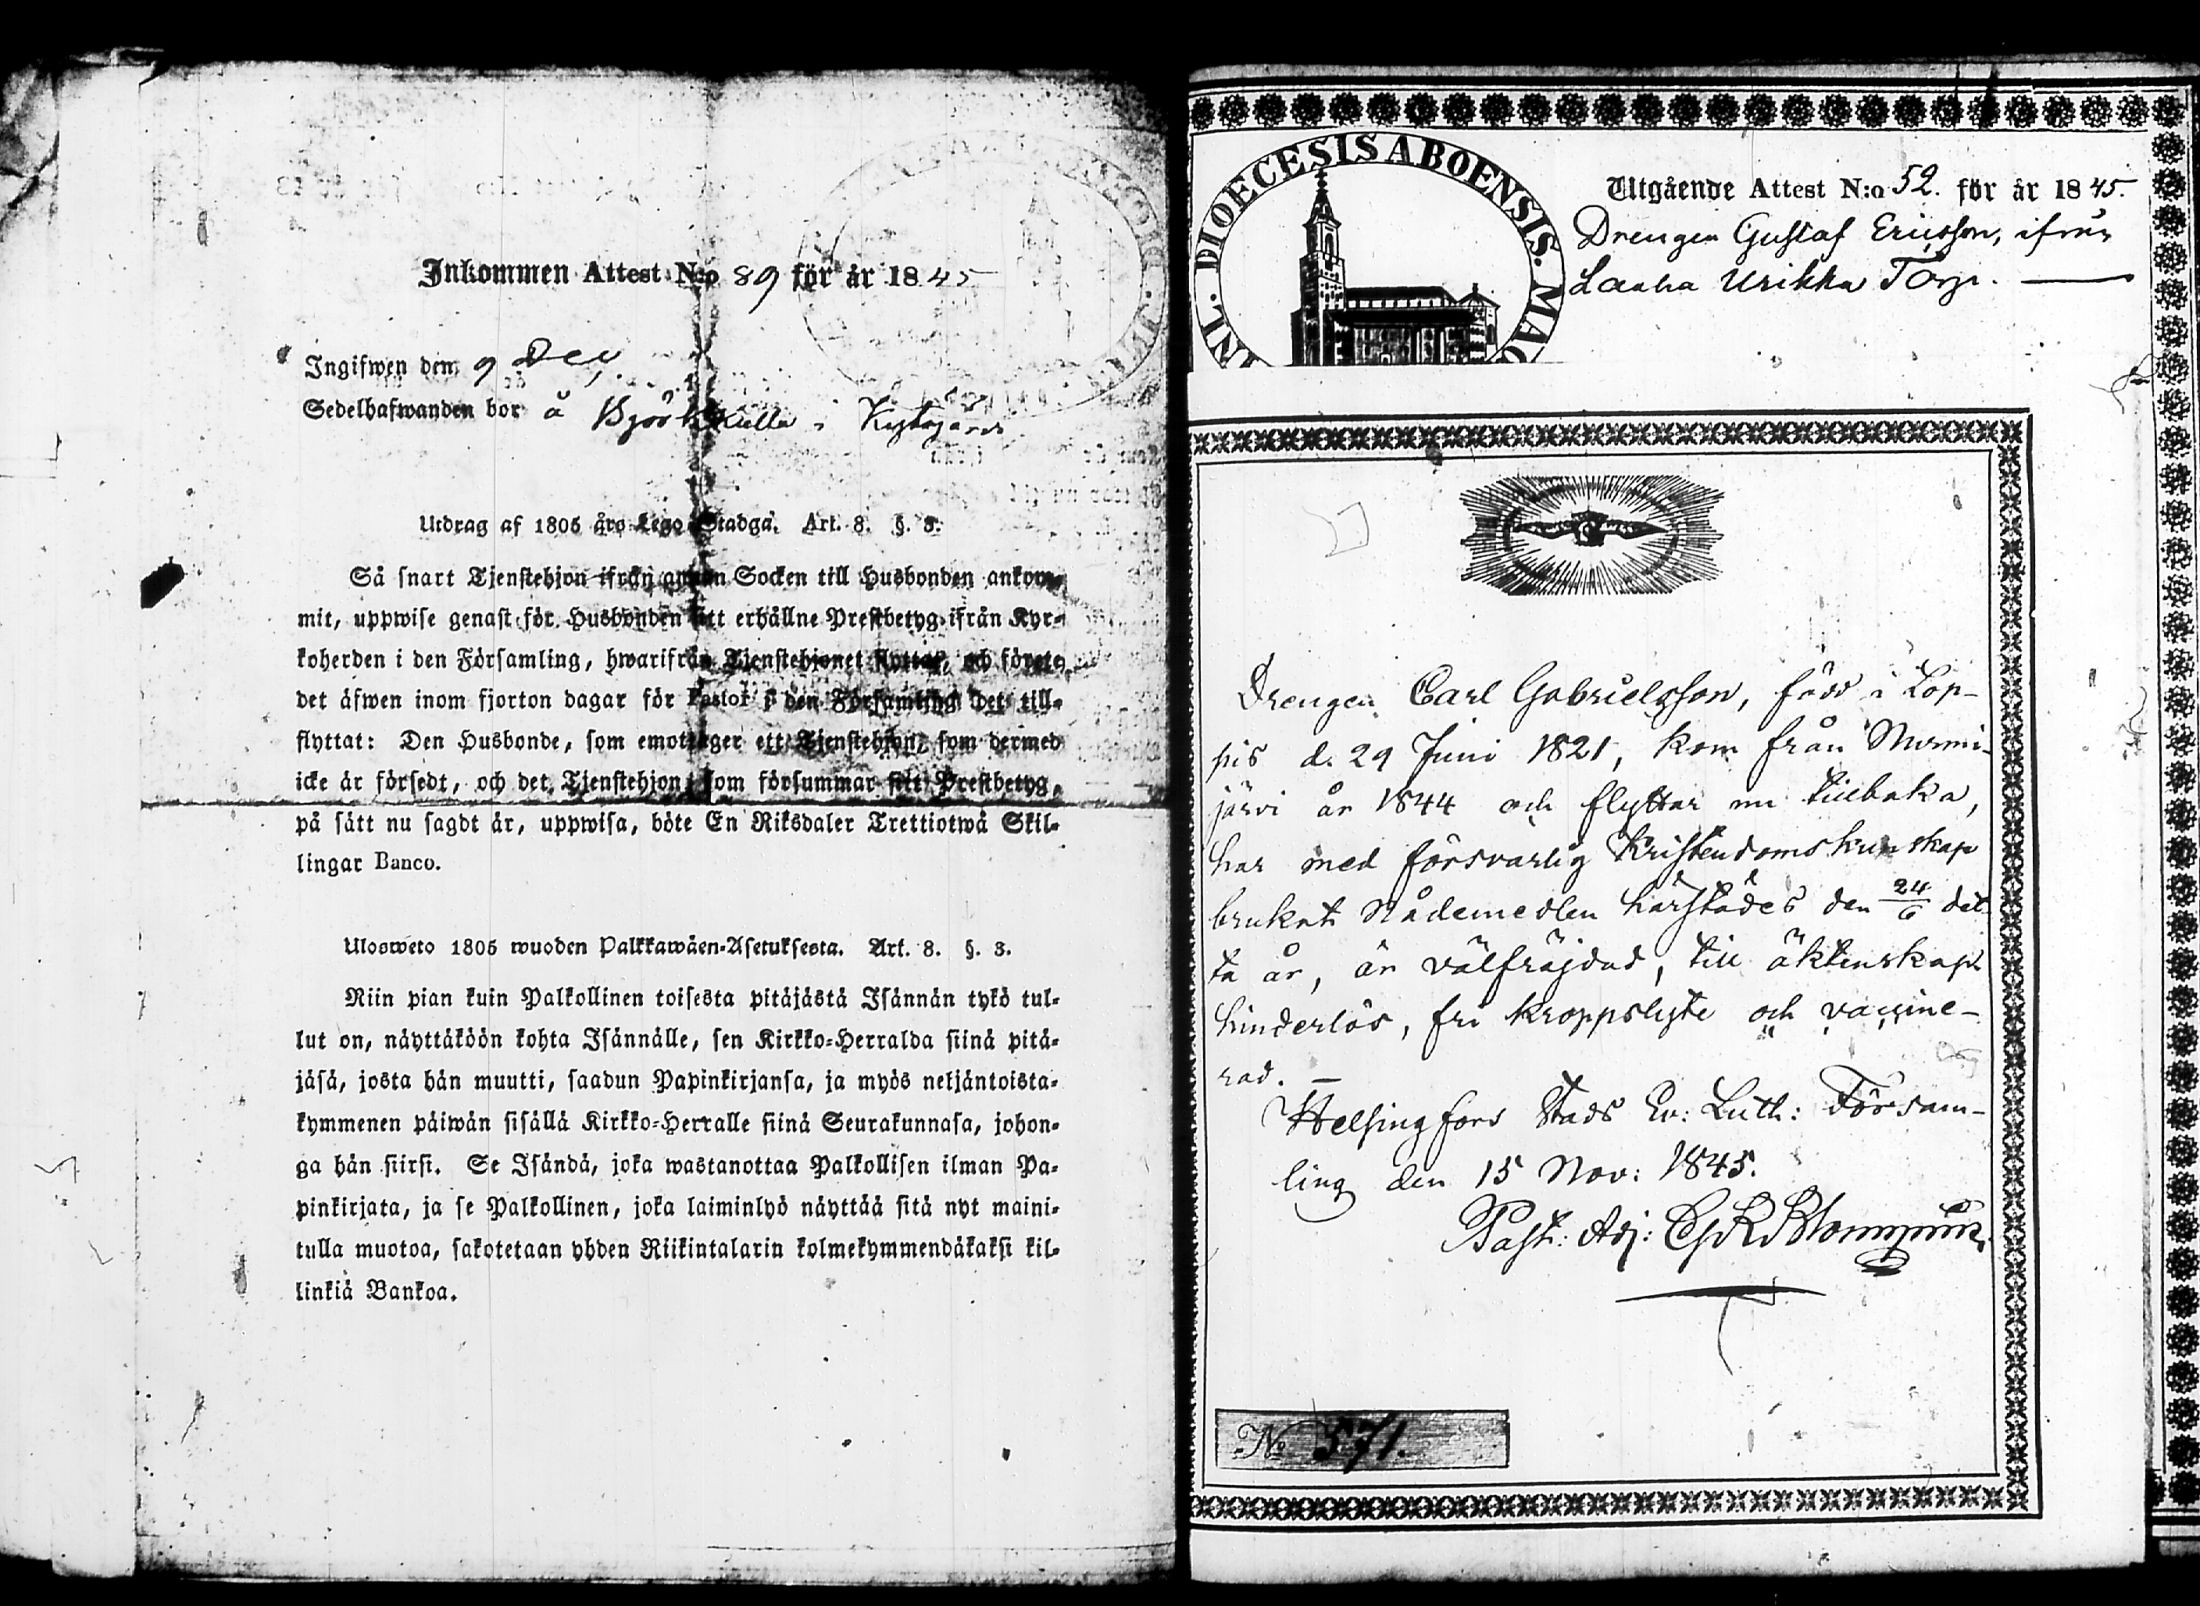 Inkommen Attest N:o 89 för år 1845
Ingifwen den 9 Dec
Sedelhafwanden bor å Björkkulla i Kytäjärvi
Utdrag af 1805 års Lego Stadga. Art. 8. §. 3.
Så snart Tjenstehjon ifrån annan Socken till Husbonden ankom-
mit, uppwise genast för Husbonden sitt erhållne Prestbetyg ifrån Kyr-
koherden i den Församling, hwarifrån Tjenstehjonet flyttat, och förete
det äfwen inom fjorton dagar för Pastor i den Församling det till-
flyttat: Den Husbonde, som emottager ett Tjenstehjon, som dermed
icke är försedt, och det Tjenstehjon som försummar sitt Prestbetyg,
på sätt nu sagdt är, uppwisa, böte En Riksdaler Trettiotwå Skil-
lingar Banco.
Ulosweto 1805 wuoden Palkkawäen-Asetuksesta. Art. 8. §. 3.
Niin pian kuin Palkollinen toisesta pitäjästä Isännän tykö tul-
lut on, näyttäköön kohta Isännälle, sen Kirkko-Herralda siinä pitä-
jäsä, josta hän muutti, saadun Papinkirjansa, ja myös neljäntoista-
kymmenen päiwän sisällä Kirkko-Herralle siinä Seurakunnasa, johon-
ga hän siirsi. Se Isändä, joka wastanottaa Palkollisen ilman Pa-
pinkirjata, ja se Palkollinen, joka laiminlyö näyttää sitä nyt maini-
tulla muotoa, sakotetaan yhden Riikintalarin kolmekymmendäkaksi kil-
linkiä Bankoa.
Utgående Attest N:o 52. för år 1845.
Drengen Gustaf Ericsson, ifrån
Laaha Urikka Torp.
INL. DIOECESIS ABOENSIS. MAG
Drengen Carl Gabrielsson, född i Lop-
pis d. 29 Juni 1821, kom från Nurmi-
järvi år 1844 och flyttar nu tillbaka,
har med försvarlig Kristendomskunskap
brukat Nådemedlen härstädes den 24/6 det-
ta år, är välfräjdad, till äktenskap
hinderlös, fri kroppslyte och vaccine-
rad. —
Helsingfors Stads Ev: Luth: Försam-
ling den 15 Nov: 1845.
Past: Adj:
No 571.